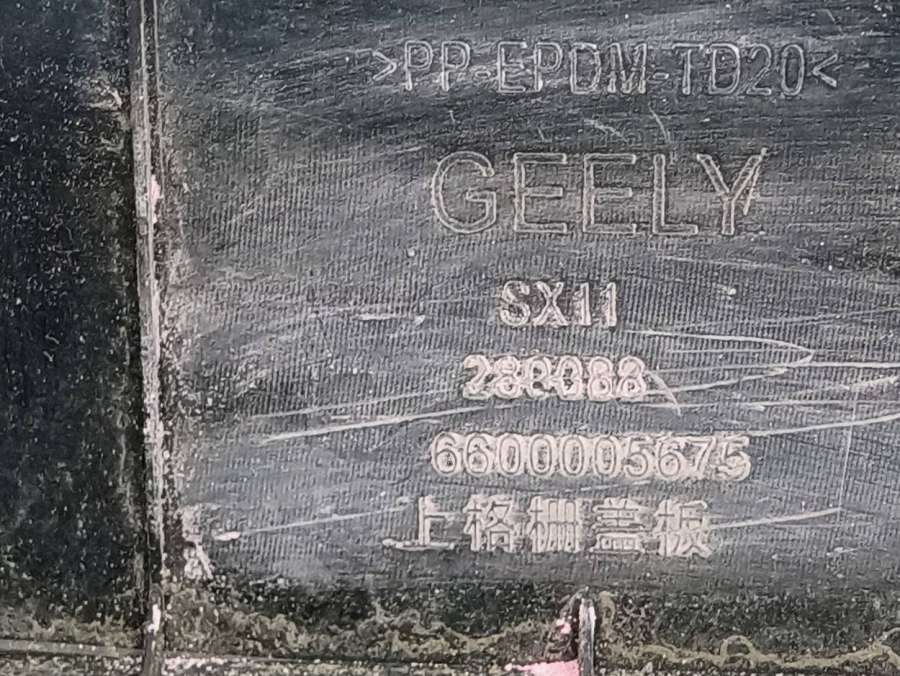 >PP-EPDM-TD20<
GEELY
SX11
6600005675
上格栅盖板